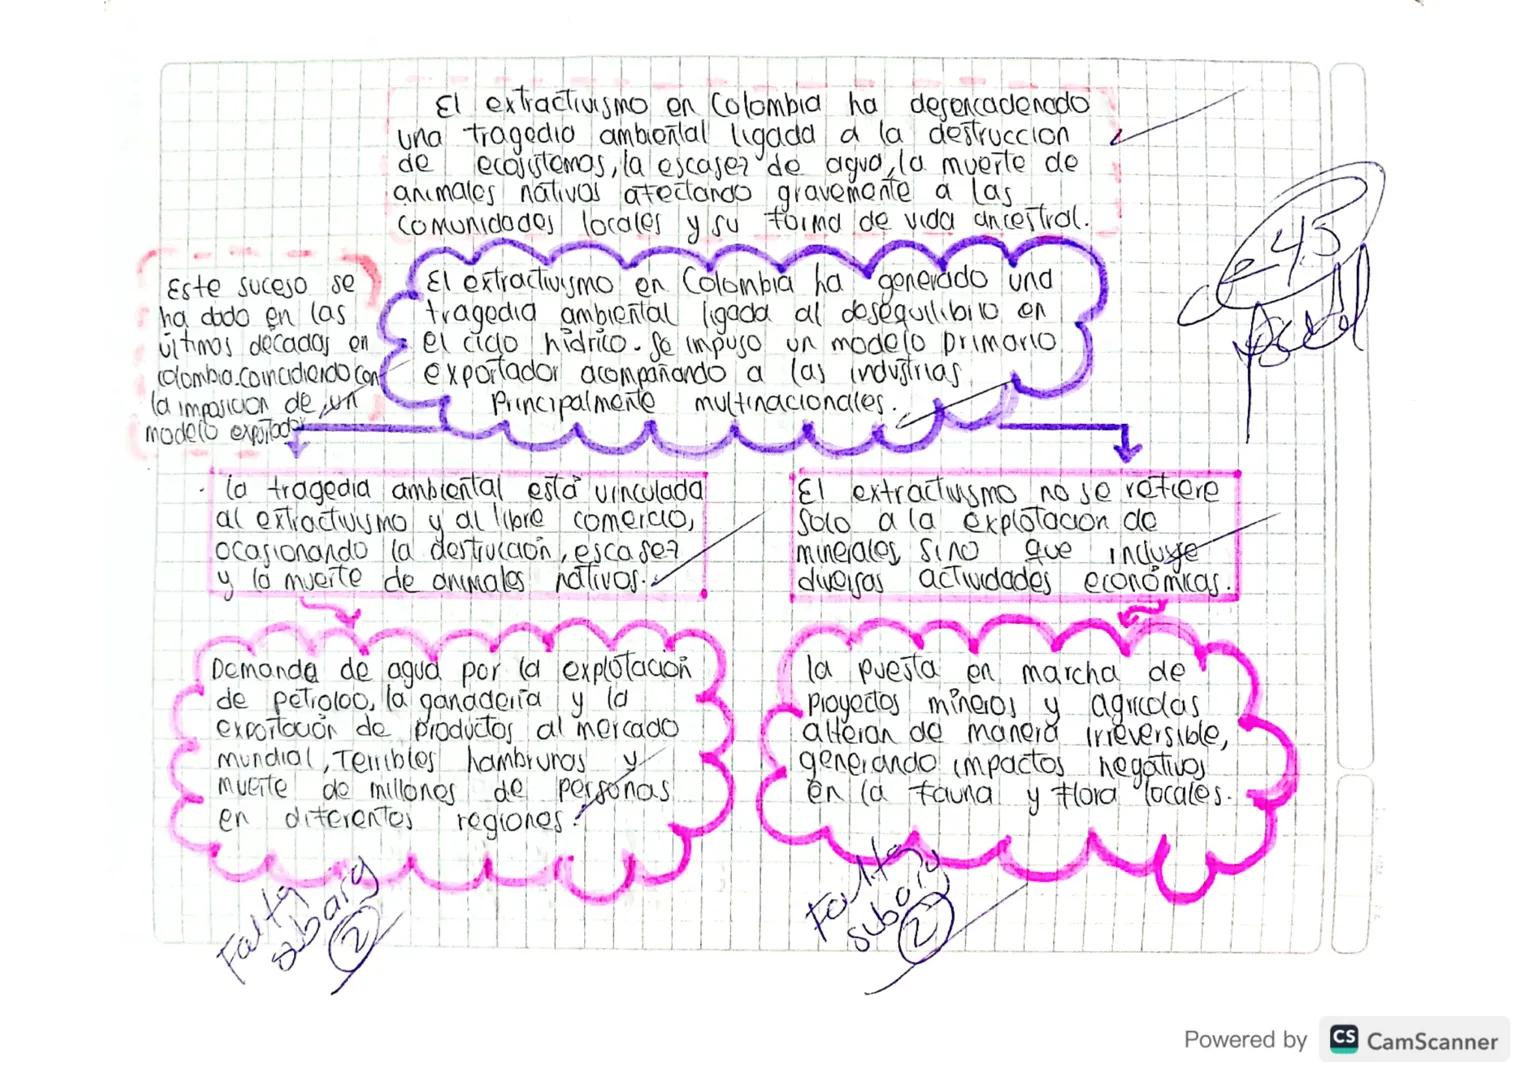 El extractivismo en Colombia ha desencadenado
una tragedia ambiental ligada a la destruccion
de ecosistemas, la escasez de agua, la muerte de
animales nativos afectando gravemente a las
comunidades locales y su forma de vida ancestral.
Este suceso se
ha dado en las
ultimos décadas en
Colombia. coincidiendo con
la imposicion de un
modelo exportador
El extractivismo en Colombia ha generado una
tragedia ambiental ligada al desequilibrio en
el ciclo hídrico. Se impuso un modelo primario
exportador acompañando a las industrias
Principalmente multinacionales.
4.5
la tragedia ambiental está vinculada
al extractivismo y al libre comercio,
ocasionando la destrucción, escasez
y la muerte de animales nativos.
El extractivismo no se refiere
solo a la explotacion de
minerales, sino que incluye
diversas actividades económicas.
Demanda de agua por la explotación
de petroleo, la ganadería y la
exportación de productos al mercado
mundial, Terribles hambrunas y
muerte de millones de personas
en diferentes regiones.
la puesta en marcha de
proyectos mineros y agricolas
alteran de manera irreversible,
generando impactos negativos
en la fauna y flora locales.
Falta
subarg
2
Falta
subarg
2
Powered by CS CamScanner